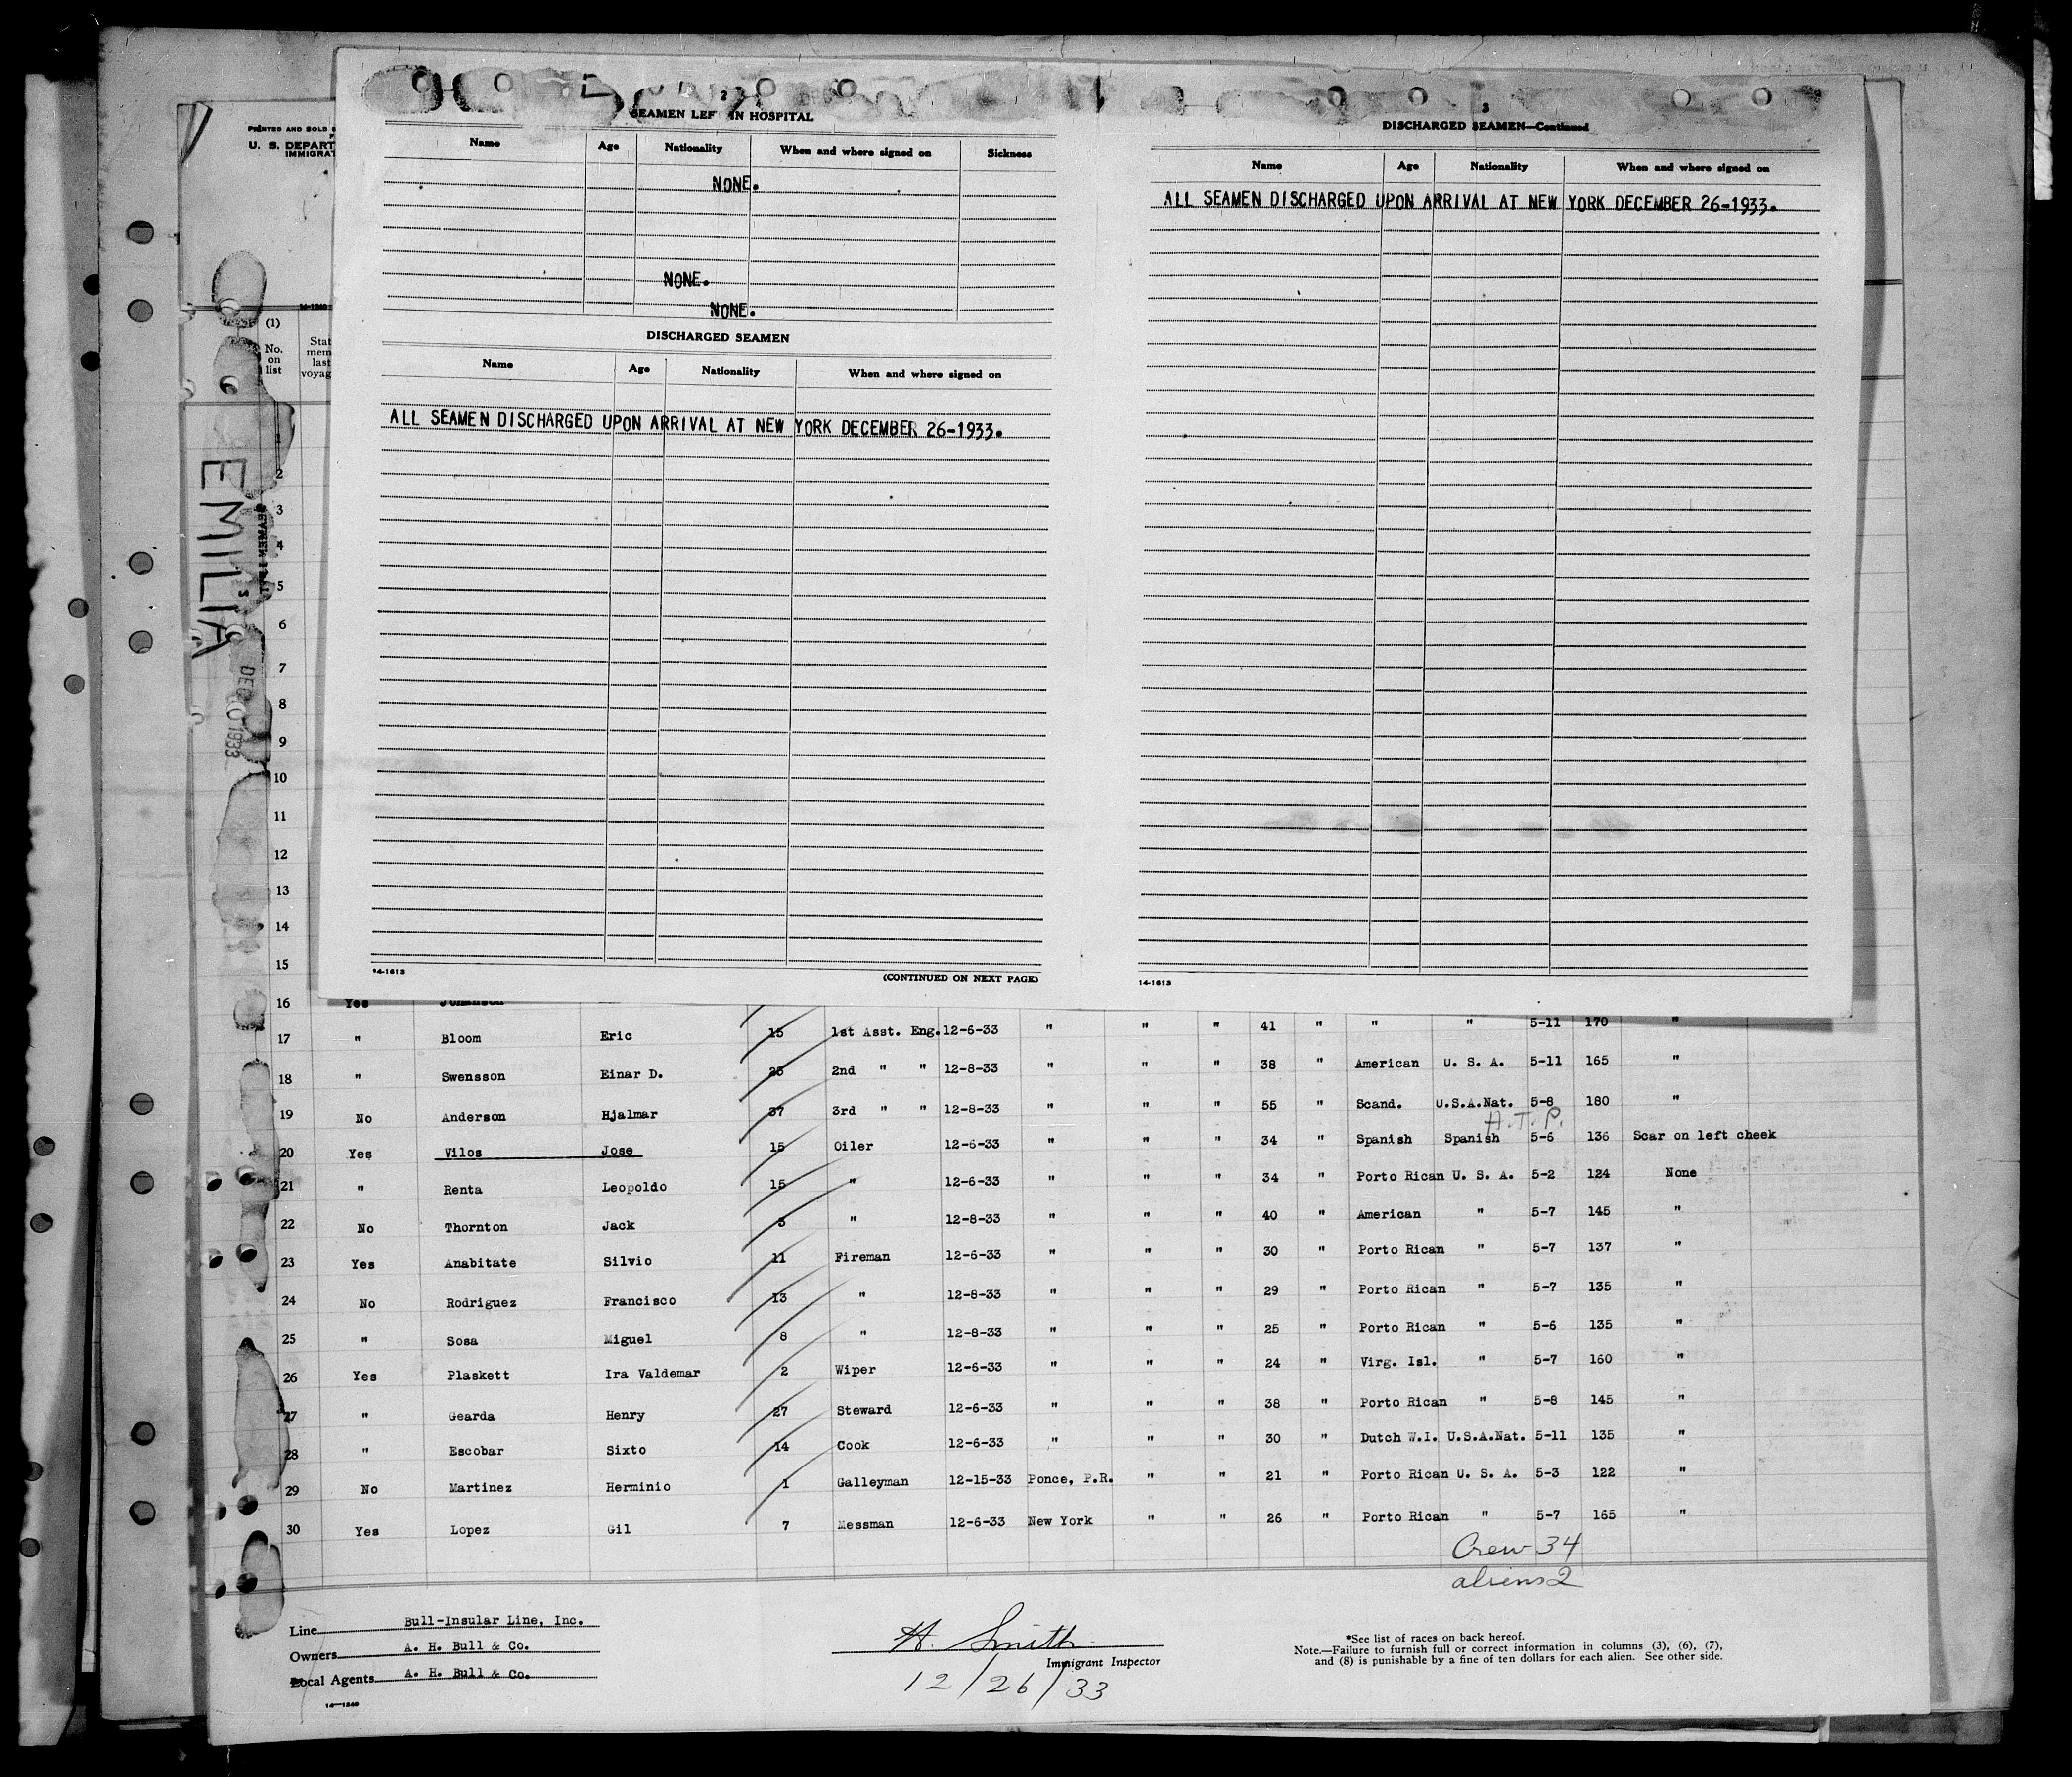 2
SEAMEN LEF IN HOSPITAL
Name Age Nationality When and where signed on Sickness
NONE.
NONE.
NONE.
DISCHARGED SEAMEN
Name Age Nationality When and where signed on
ALL SEAMEN DISCHARGED UPON ARRIVAL AT NEW YORK DECEMBER 26-1933.
14-1613
(CONTINUED ON NEXT PAGE)
3
DISCHARGED SEAMEN—Continued
Name Age Nationality When and where signed on
ALL SEAMEN DISCHARGED UPON ARRIVAL AT NEW YORK DECEMBER 26-1933.
14-1613
PRINTED AND SOLD
U. S. DEPART
IMMIGRAT
14-1240
(1)
No. on list
Stat
mem
last
voyag
EMILIA
DEC 1933
2
3
4
5
6
7
8
9
10
11
12
13
14
15
16 Yes
17 " Bloom Eric 15 1st Asst. Eng. 12-6-33 " " " 41 " " " 5-11 170 "
18 " Swensson Einar D. 25 2nd " " 12-8-33 " " " 38 " American U. S. A. 5-11 165 "
19 No Anderson Hjalmar 37 3rd " " 12-8-33 " " " 55 " Scand. U.S.A.Nat. 5-8 180 "
H.T.P.
20 Yes Vilos Jose 15 Oiler 12-6-33 " " " 34 " Spanish Spanish 5-6 136 Scar on left cheek
21 " Renta Leopoldo 15 " 12-6-33 " " " 34 " Porto Rican U. S. A. 5-2 124 None
22 No Thornton Jack 5 " 12-8-33 " " " 40 " American " 5-7 145 "
23 Yes Anabitate Silvio 11 Fireman 12-6-33 " " " 30 " Porto Rican " 5-7 137 "
24 No Rodriguez Francisco 13 " 12-8-33 " " " 29 " Porto Rican " 5-7 135 "
25 " Sosa Miguel 8 " 12-8-33 " " " 25 " Porto Rican " 5-6 135 "
26 Yes Plaskett Ira Valdemar 2 Wiper 12-6-33 " " " 24 " Virg. Isl. " 5-7 160 "
27 " Gearda Henry 27 Steward 12-6-33 " " " 38 " Porto Rican " 5-8 145 "
28 " Escobar Sixto 14 Cook 12-6-33 " " " 30 " Dutch W.I. U.S.A.Nat. 5-11 135 "
29 No Martinez Herminio 1 Galleyman 12-15-33 Ponce, P.R. " " 21 " Porto Rican U. S. A. 5-3 122 "
30 Yes Lopez Gil 7 Messman 12-6-33 New York " " 26 " Porto Rican " 5-7 165 "
Crew 34
aliens 2
Line Bull-Insular Line, Inc.
Owners A. H. Bull & Co.
Local Agents A. H. Bull & Co.
14—1240
H. Smith
Immigrant Inspector
12/26/33
*See list of races on back hereof.
Note.—Failure to furnish full or correct information in columns (3), (6), (7),
and (8) is punishable by a fine of ten dollars for each alien. See other side.